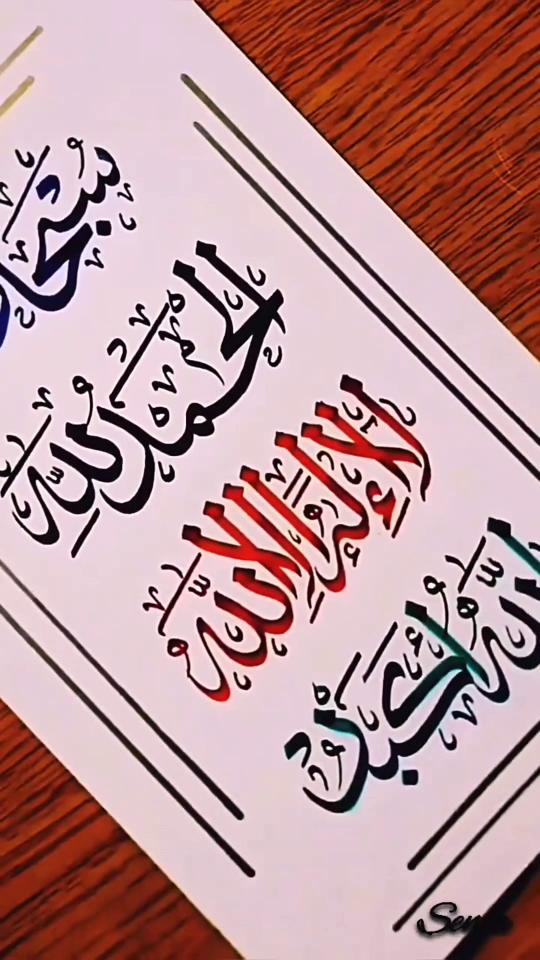 سبحا
الحمد لله
لا إله إلا الله
الله أكبر